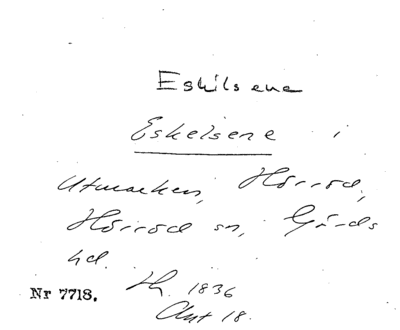 Eskilsene
Eskelsene i
Utmarken, Hörröd,
Hörröd sn, Gärds
hd.
Nr 7718. Lh. 1836
Akt 18.